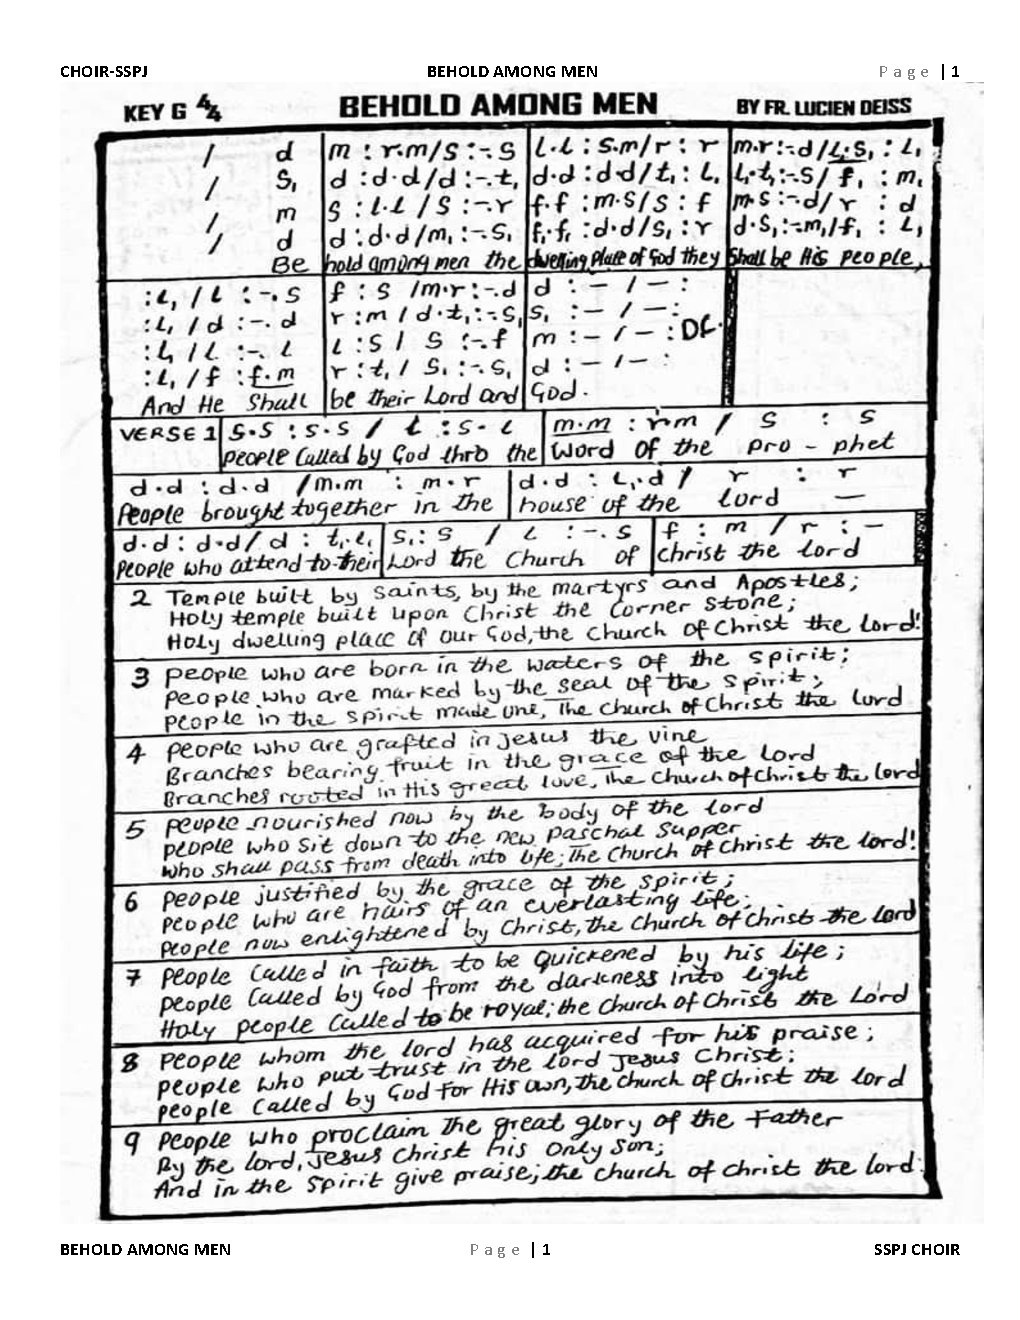 CHOIR-SSPJ BEHOLD AMONG MEN Page | 1
KEY G 4/4 BEHOLD AMONG MEN BY FR. LUCIEN DEISS
/ d | m : r.m/s : -. s | l.l : s.m/r : r | m.r:-.d/l₁.s₁ : l₁
/ s₁ | d :d.d/d :-.t₁ | d.d :d.d/t₁ : l₁ | l₁.t₁:-.s/ f₁ : m₁
/ m | s : l.l /s :-.r | f.f :m.s/s : f | m.s:-.d/r : d
/ d | d:d.d/m₁:-.s₁ | f₁.f₁ :d.d/s₁ :r | d.s₁:-.m₁/f₁ : l₁
Be hold among men the dwelling place of God they shall be His people,
:l₁ / l :-. s | f : s /m.r:-.d | d : - / - :
:l₁ / d :-. d | r :m / d.t₁:-.s₁ | s₁ : - / - :
:l₁ / l :-. l | l :s / s :-.f | m : - / - : DC.
:l₁ / f :f.m | r :t₁ / s₁ :-.s₁ | d : - / - :
And He Shall be their Lord and God.
VERSE 1 s.s :s.s / l :s.l | m.m : r.m / s : s
people called by God thro the word of the pro - phet
d.d : d.d /m.m : m.r | d.d : l₁.d / r : r
People brought together in the house of the lord —
d.d: d.d/ d : t₁.l₁ | s₁: s / l :-. s | f : m / r : -
people who attend to their Lord the Church of christ the lord
2 Temple built by saints, by the martyrs and Apostles;
Holy temple built upon Christ the corner stone;
Holy dwelling place of our God, the church of Christ the lord!
3 people who are born in the waters of the spirit;
people who are marked by the seal of the spirit;
people in the spirit made one, The church of Christ the lord
4 people who are grafted in Jesus the vine
Branches bearing fruit in the grace of the lord
Branches rooted in His great love, The church of christ the lord
5 people nourished now by the body of the lord
people who sit down to the new paschal supper
who shall pass from death into life; The church of Christ the lord!
6 people justified by the grace of the spirit;
people who are hairs of an everlasting life;
people now enlightened by Christ, the church of christ the lord
7 people called in faith to be quickened by his life;
people called by God from the darkness into light
Holy people called to be royal; the church of Christ the Lord
8 people whom the lord has acquired for his praise;
people who put trust in the lord Jesus Christ;
people called by God for His own, the church of Christ the lord
9 people who proclaim the great glory of the Father
By the lord, Jesus Christ his only Son;
And in the spirit give praise; the church of christ the lord.
BEHOLD AMONG MEN Page | 1 SSPJ CHOIR